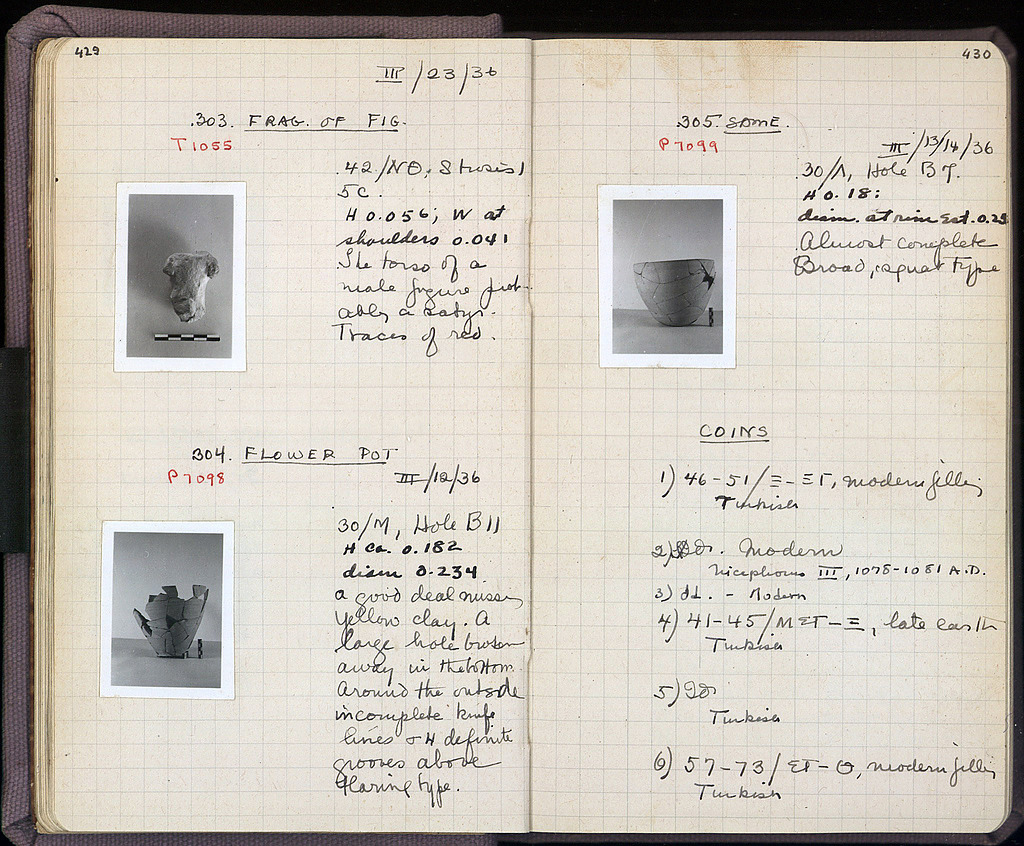 429
III/23/36
303. FRAG. OF FIG.
T1055
42/ΝΘ,
5 C.
H 0.056; W at
shoulders 0.041
The torso of a
male figure prob-
ably a satyr.
Traces of red.
304. FLOWER POT
P7098
III/12/36
30/Μ, Hole B 11
H ca. 0.182
diam 0.234
a good deal missing
Yellow clay. A
large hole broken
away in the bottom.
Around the outside
incomplete knife
lines & 4 definite
grooves above
flaring type.
430
305. SAME.
P7099
III/13/14/36
30/Λ, Hole B 7.
H 0.18:
diam. at rim est.
Almost complete
Broad, squat type
COINS
1) 46-51/Ξ-ΞΓ, modern filling
Turkish
2) Do. Modern
Nicephorus III, 1078-1081 A.D.
3) do. - Modern
4) 41-45/ΜΣΤ-Ξ, late earth
Turkish
5) Do
Turkish
6) 57-73/ΣΤ-Θ, modern filling
Turkish